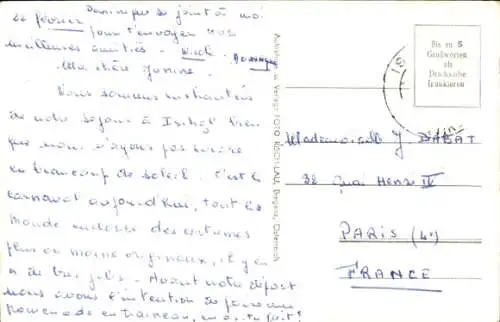 Dominique se joint à moi
22 février pour t'envoyer nos
meilleures amitiés. Dominique
Ma chère Janine.
Nous sommes enchantées
de notre séjour à Ischgl bien
que nous n'ayons pas encore
eu beaucoup de soleil. C'est le
carnaval aujourd'hui, tout le
monde endosse des costumes
plus ou moins originaux, il y en
a de très jolis. Avant notre départ
nous avons l'intention de faire une
promenade en traineau, en
Bis zu 5
Grußworten
als
Drucksache
frankieren
Aufnahme u. Verlag FOTO RISCH-LAU, Bregenz, Österreich
Mademoiselle J. DABAT
32 Quai Henri IV
PARIS (4e)
FRANCE